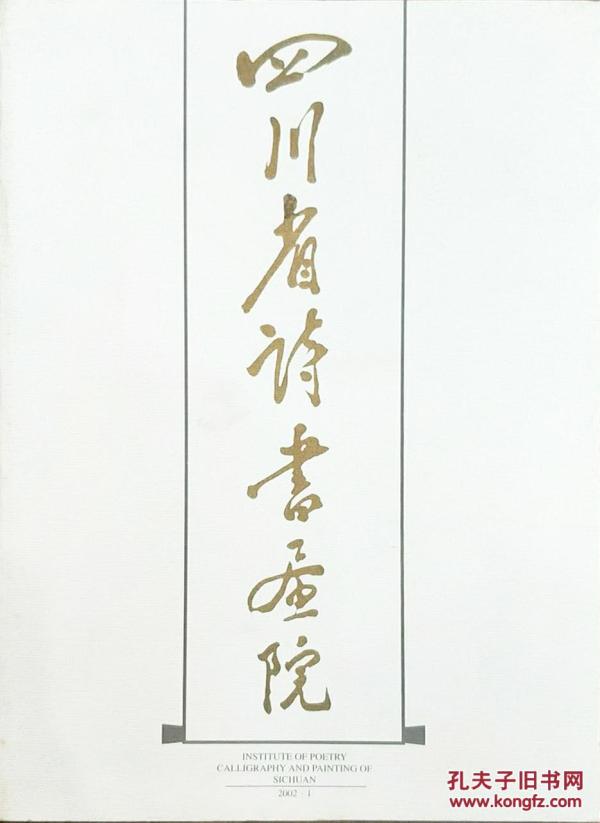 四川省詩書画院
INSTITUTE OF POETRY
CALLIGRAPHY AND PAINTING OF
SICHUAN
2002 · 1
孔夫子旧书网
www.kongfz.com